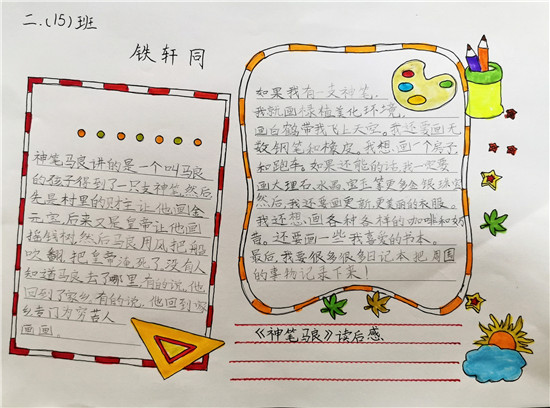 二.(15)班
铁轩同
神笔马良讲的是一个叫马良
的孩子得到了一只支神笔,然后,
先是村里的财主让他画金
元宝,后来又是皇帝让他画
摇钱树,然后马良用风把船
吹翻,把皇帝淹死了,没有人
知道马良去了哪里,有的说,他
回到了家乡,有的说,他回到家
乡专门为穷苦人
画画。
如果我有一支神笔,
我就画绿植美化环境,
画白鹤带我飞上天空。我还要画无
数钢笔和橡皮。我想画一个房子
和跑车。如果还能的话,我一定要
画大理石、水晶、宝玉等更多金银珠宝
然后,我还要画更新、更美丽的衣服。
我还想画各种各样的咖啡和奶
昔。还要画一些我喜爱的书本。
最后,我要很多很多日记本把周围
的事物记录下来!
《神笔马良》读后感